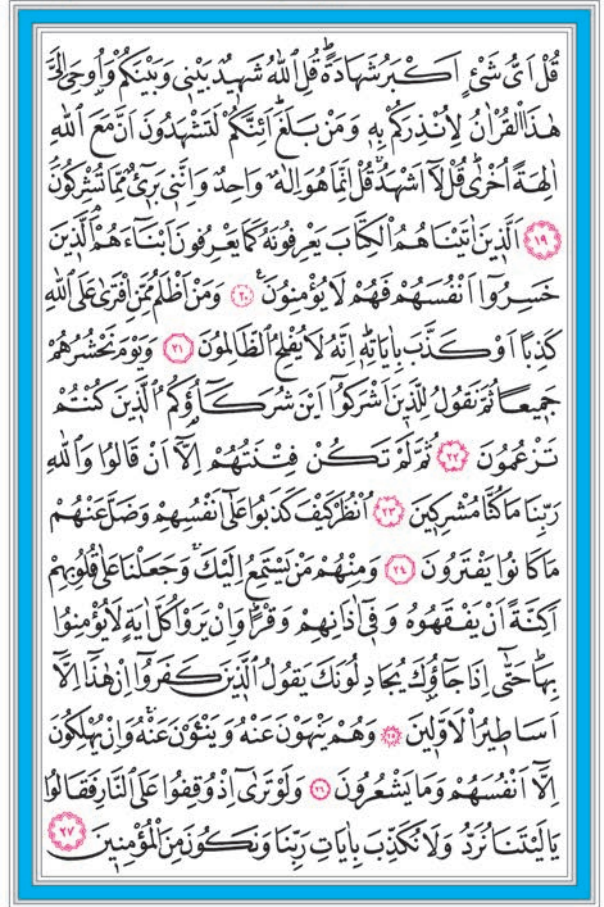 قُلْ اَىُّ شَىْءٍ اَكْبَرُ شَهَادَةًۜ قُلِ اللّٰهُ شَهٖيدٌ بَيْنٖى وَبَيْنَكُمْ وَاُوحِىَ اِلَىَّ
هٰذَا الْقُرْاٰنُ لِاُنْذِرَكُمْ بِهٖ وَمَنْ بَلَغَۜ اَئِنَّكُمْ لَتَشْهَدُونَ اَنَّ مَعَ اللّٰهِ
اٰلِهَةً اُخْرٰىۜ قُلْ لَٓا اَشْهَدُۚ قُلْ اِنَّمَا هُوَ اِلٰهٌ وَاحِدٌ وَاِنَّنٖى بَرٖٓىءٌ مِمَّا تُشْرِكُونَۢ
﴿١٩﴾ اَلَّذٖينَ اٰتَيْنَاهُمُ الْكِتَابَ يَعْرِفُونَهُ كَمَا يَعْرِفُونَ اَبْنَٓاءَهُمْۢ اَلَّذٖينَ
خَسِرُٓوا اَنْفُسَهُمْ فَهُمْ لَا يُؤْمِنُونَࣖ ﴿٢٠﴾ وَمَنْ اَظْلَمُ مِمَّنِ افْتَرٰى عَلَى اللّٰهِ
كَذِبًا اَوْ كَذَّبَ بِاٰيَاتِهٖۜ اِنَّهُ لَا يُفْلِحُ الظَّالِمُونَ ﴿٢١﴾ وَيَوْمَ نَحْشُرُهُمْ
جَمٖيعًا ثُمَّ نَقُولُ لِلَّذٖينَ اَشْرَكُٓوا اَيْنَ شُرَكَٓاؤُ۬كُمُ الَّذٖينَ كُنْتُمْ
تَزْعُمُونَ ﴿٢٢﴾ ثُمَّ لَمْ تَكُنْ فِتْنَتُهُمْ اِلَّٓا اَنْ قَالُوا وَاللّٰهِ
رَبِّنَا مَا كُنَّا مُشْرِكٖينَ ﴿٢٣﴾ اُنْظُرْ كَيْفَ كَذَبُوا عَلٰٓى اَنْفُسِهِمْ وَضَلَّ عَنْهُمْ
مَا كَانُوا يَفْتَرُونَ ﴿٢٤﴾ وَمِنْهُمْ مَنْ يَسْتَمِعُ اِلَيْكَۚ وَجَعَلْنَا عَلٰى قُلُوبِهِمْ
اَكِنَّةً اَنْ يَفْقَهُوهُ وَفٖٓى اٰذَانِهِمْ وَقْرًاۜ وَاِنْ يَرَوْا كُلَّ اٰيَةٍ لَا يُؤْمِنُوا
بِهَاۜ حَتّٰٓى اِذَا جَٓاؤُ۫كَ يُجَادِلُونَكَ يَقُولُ الَّذٖينَ كَفَرُٓوا اِنْ هٰذَٓا اِلَّٓا
اَسَاطٖيرُ الْاَوَّلٖينَ ﴿٢٥﴾ وَهُمْ يَنْهَوْنَ عَنْهُ وَيَنْـَٔوْنَ عَنْهُۚ وَاِنْ يُهْلِكُونَ
اِلَّٓا اَنْفُسَهُمْ وَمَا يَشْعُرُونَ ﴿٢٦﴾ وَلَوْ تَرٰٓى اِذْ وُقِفُوا عَلَى النَّارِ فَقَالُوا
يَا لَيْتَنَا نُرَدُّ وَلَا نُكَذِّبَ بِاٰيَاتِ رَبِّنَا وَنَكُونَ مِنَ الْمُؤْمِنٖينَ ﴿٢٧﴾